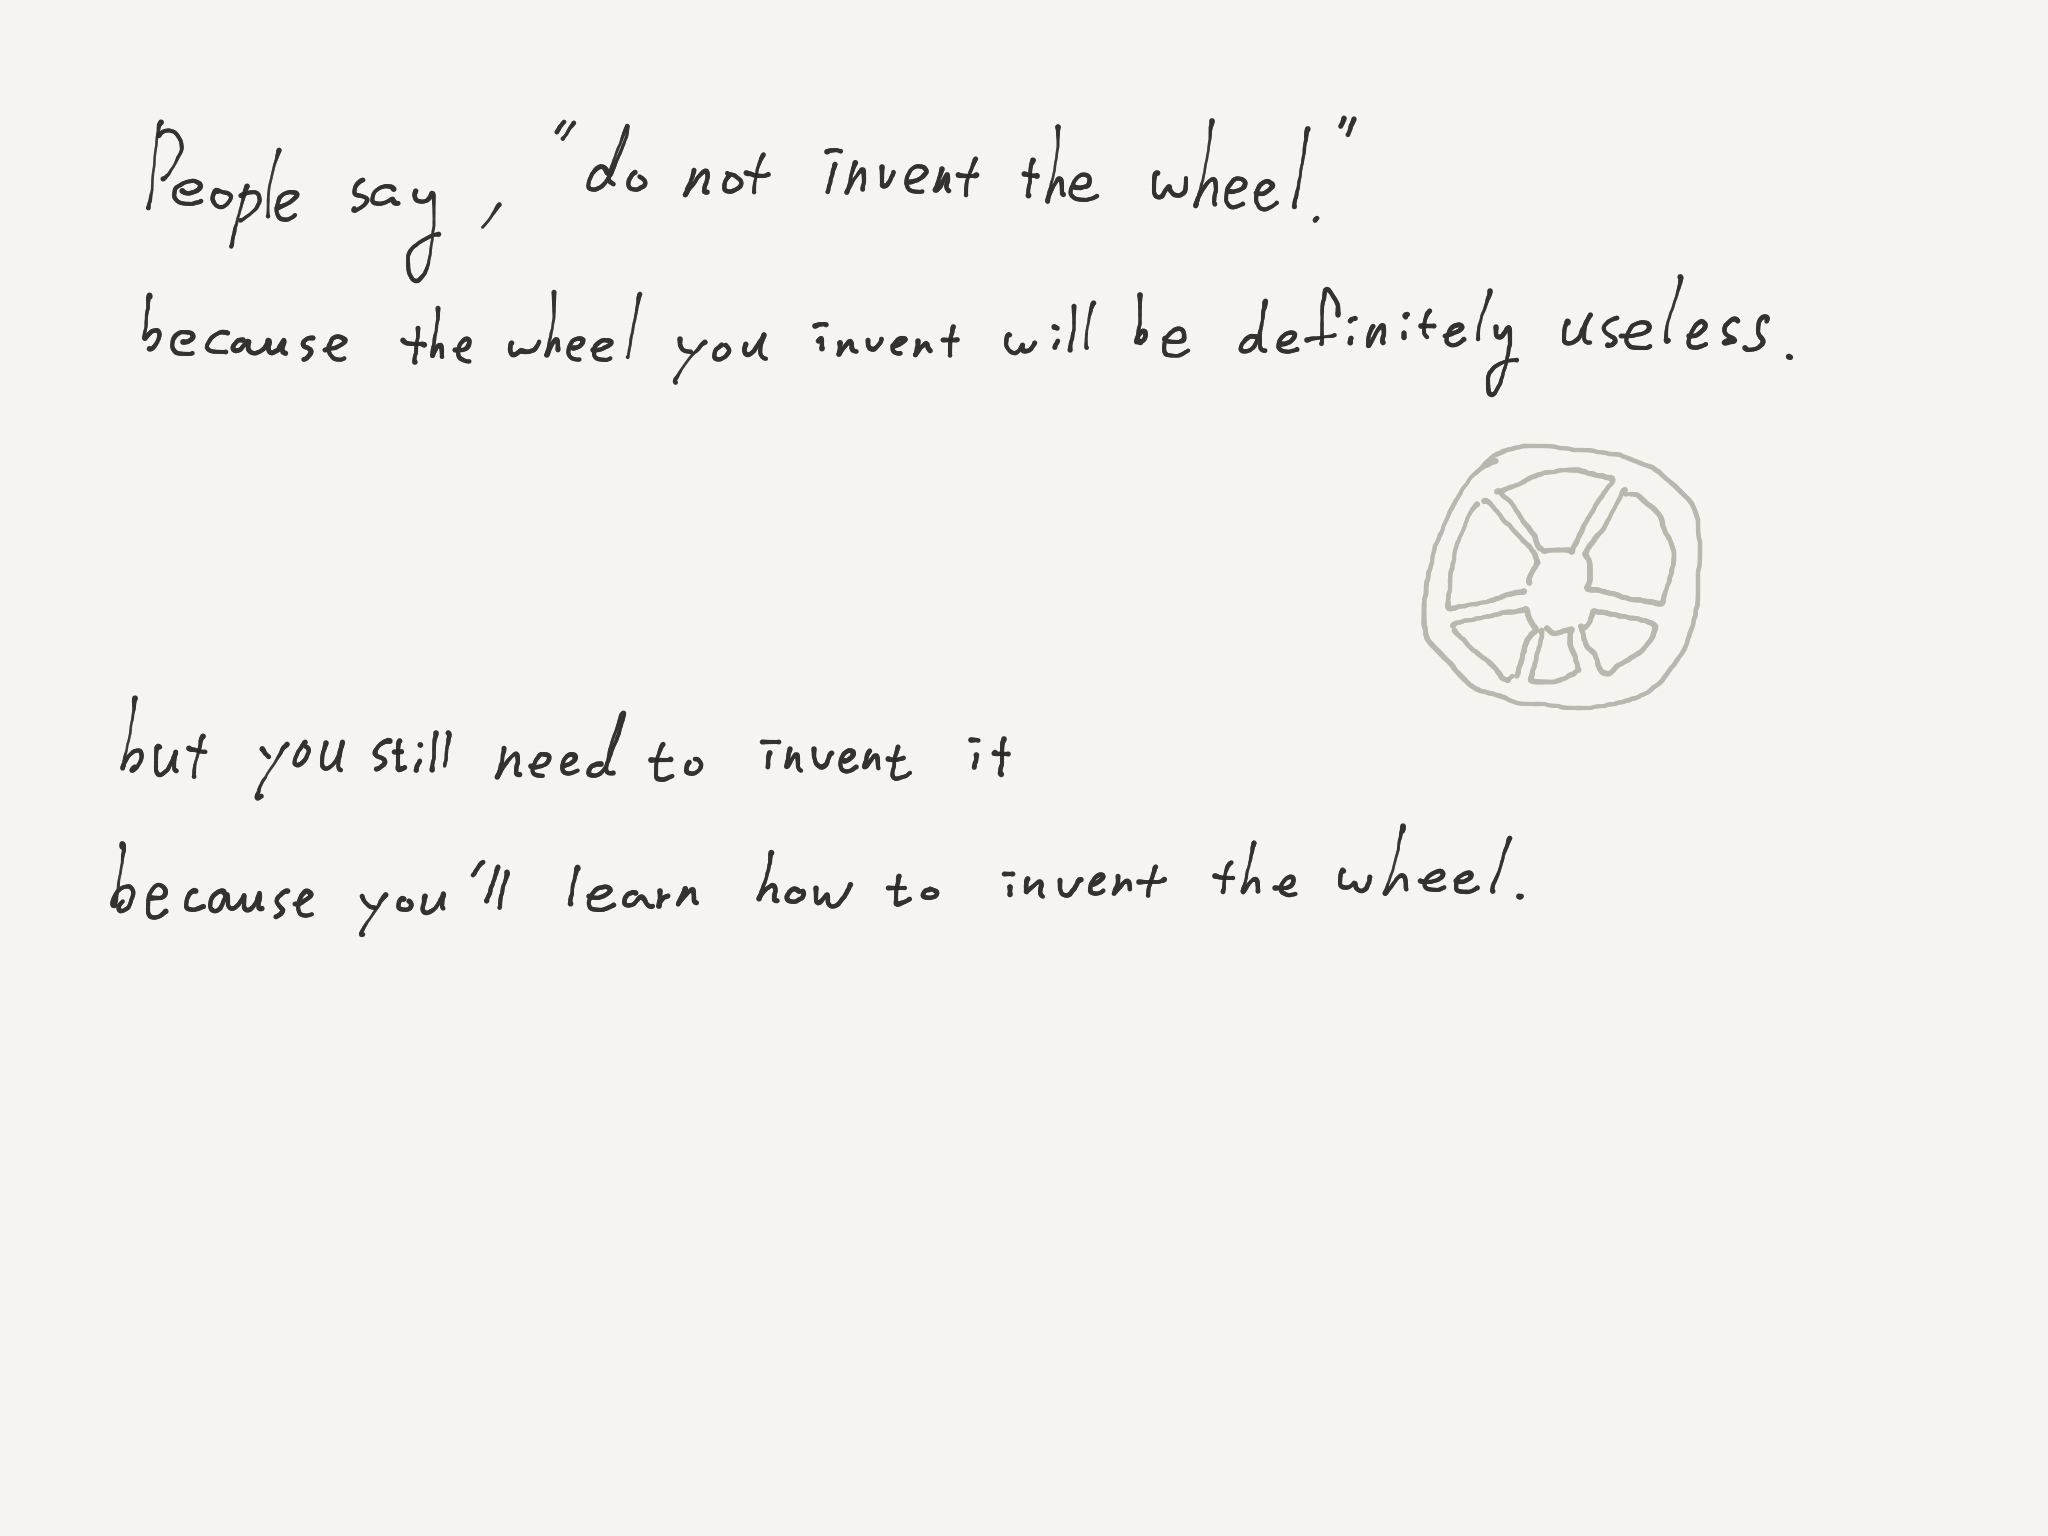 People say, "do not invent the wheel."
because the wheel you invent will be definitely useless.
but you still need to invent it
because you'll learn how to invent the wheel.